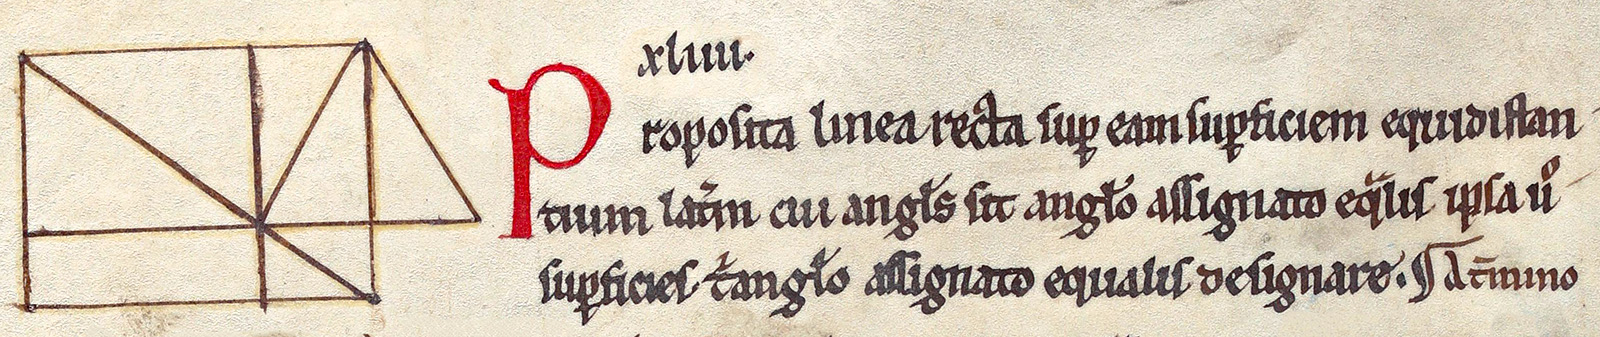 xliiii.
Proposita linea recta sup eam supficiem equidistan
tium lat̾m cui angl̾s sit angl̾o assignato eq̾lis ipsa ů
supficies t̾angl̾o assignato equalis designare. ¶ A t̾mino